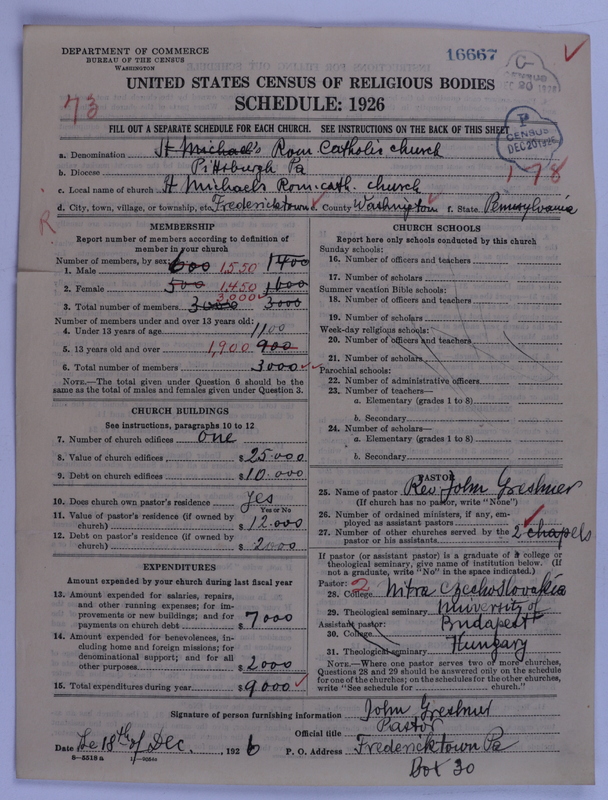 DEPARTMENT OF COMMERCE
BUREAU OF THE CENSUS
WASHINGTON
16667
CENSUS
DEC 20 1926
P
CENSUS
DEC 20 1926
UNITED STATES CENSUS OF RELIGIOUS BODIES
SCHEDULE: 1926
73
FILL OUT A SEPARATE SCHEDULE FOR EACH CHURCH. SEE INSTRUCTIONS ON THE BACK OF THIS SHEET
a. Denomination St Michael's Rom Catholic church
b. Diocese Pittsburgh Pa
c. Local name of church St Michaels Rom. cath. church
178
d. City, town, village, or township, etc. Fredericktown e. County Washington f. State Pennsylvania
R
MEMBERSHIP
Report number of members according to definition of
member in your church
Number of members, by sex:
1. Male 600 1,550 1400
2. Female 500 1,450 1600
3,000
3. Total number of members 3000 3000
Number of members under and over 13 years old:
4. Under 13 years of age 1100
5. 13 years old and over 1,900 900
6. Total number of members 3000
NOTE.—The total given under Question 6 should be
the same as the total of males and females given under Question 3.
CHURCH BUILDINGS
See instructions, paragraphs 10 to 12
7. Number of church edifices one
8. Value of church edifices $ 25.000
9. Debt on church edifices $ 10.000
10. Does church own pastor's residence? yes
Yes or No
11. Value of pastor's residence (if owned by
church) $ 12.000
12. Debt on pastor's residence (if owned by
church) $ 2000
EXPENDITURES
Amount expended by your church during last fiscal year
13. Amount expended for salaries, repairs,
and other running expenses; for im-
provements or new buildings; and for
payments on church debt $ 7000
14. Amount expended for benevolences, in-
cluding home and foreign missions; for
denominational support; and for all
other purposes $ 2000
15. Total expenditures during year $ 9000
CHURCH SCHOOLS
Report here only schools conducted by this church
Sunday schools:
16. Number of officers and teachers
17. Number of scholars
Summer vacation Bible schools:
18. Number of officers and teachers
19. Number of scholars
Week-day religious schools:
20. Number of officers and teachers
21. Number of scholars
Parochial schools:
22. Number of administrative officers
23. Number of teachers—
a. Elementary (grades 1 to 8)
b. Secondary
24. Number of scholars—
a. Elementary (grades 1 to 8)
b. Secondary
PASTOR
25. Name of pastor Rev. John Greshner
(If church has no pastor, write "None")
26. Number of ordained ministers, if any, em-
ployed as assistant pastors
27. Number of other churches served by the
pastor or his assistants 2 chapels
If pastor (or assistant pastor) is a graduate of a college or
theological seminary, give name of institution below. (If
not a graduate, write "No" in the space indicated.)
Pastor: 2
28. College Nitra Czechoslovakia
29. Theological seminary University of
Assistant pastor: Budapest
30. College
31. Theological seminary Hungary
NOTE.—Where one pastor serves two or more churches,
Questions 28 and 29 should be answered only on the schedule
for one of the churches; on the schedules for the other churches,
write "See schedule for church."
Signature of person furnishing information John Greshner
Official title Pastor
Date he 18th of Dec. , 1926 P. O. Address Fredericktown Pa
8—5518 a
Box 30